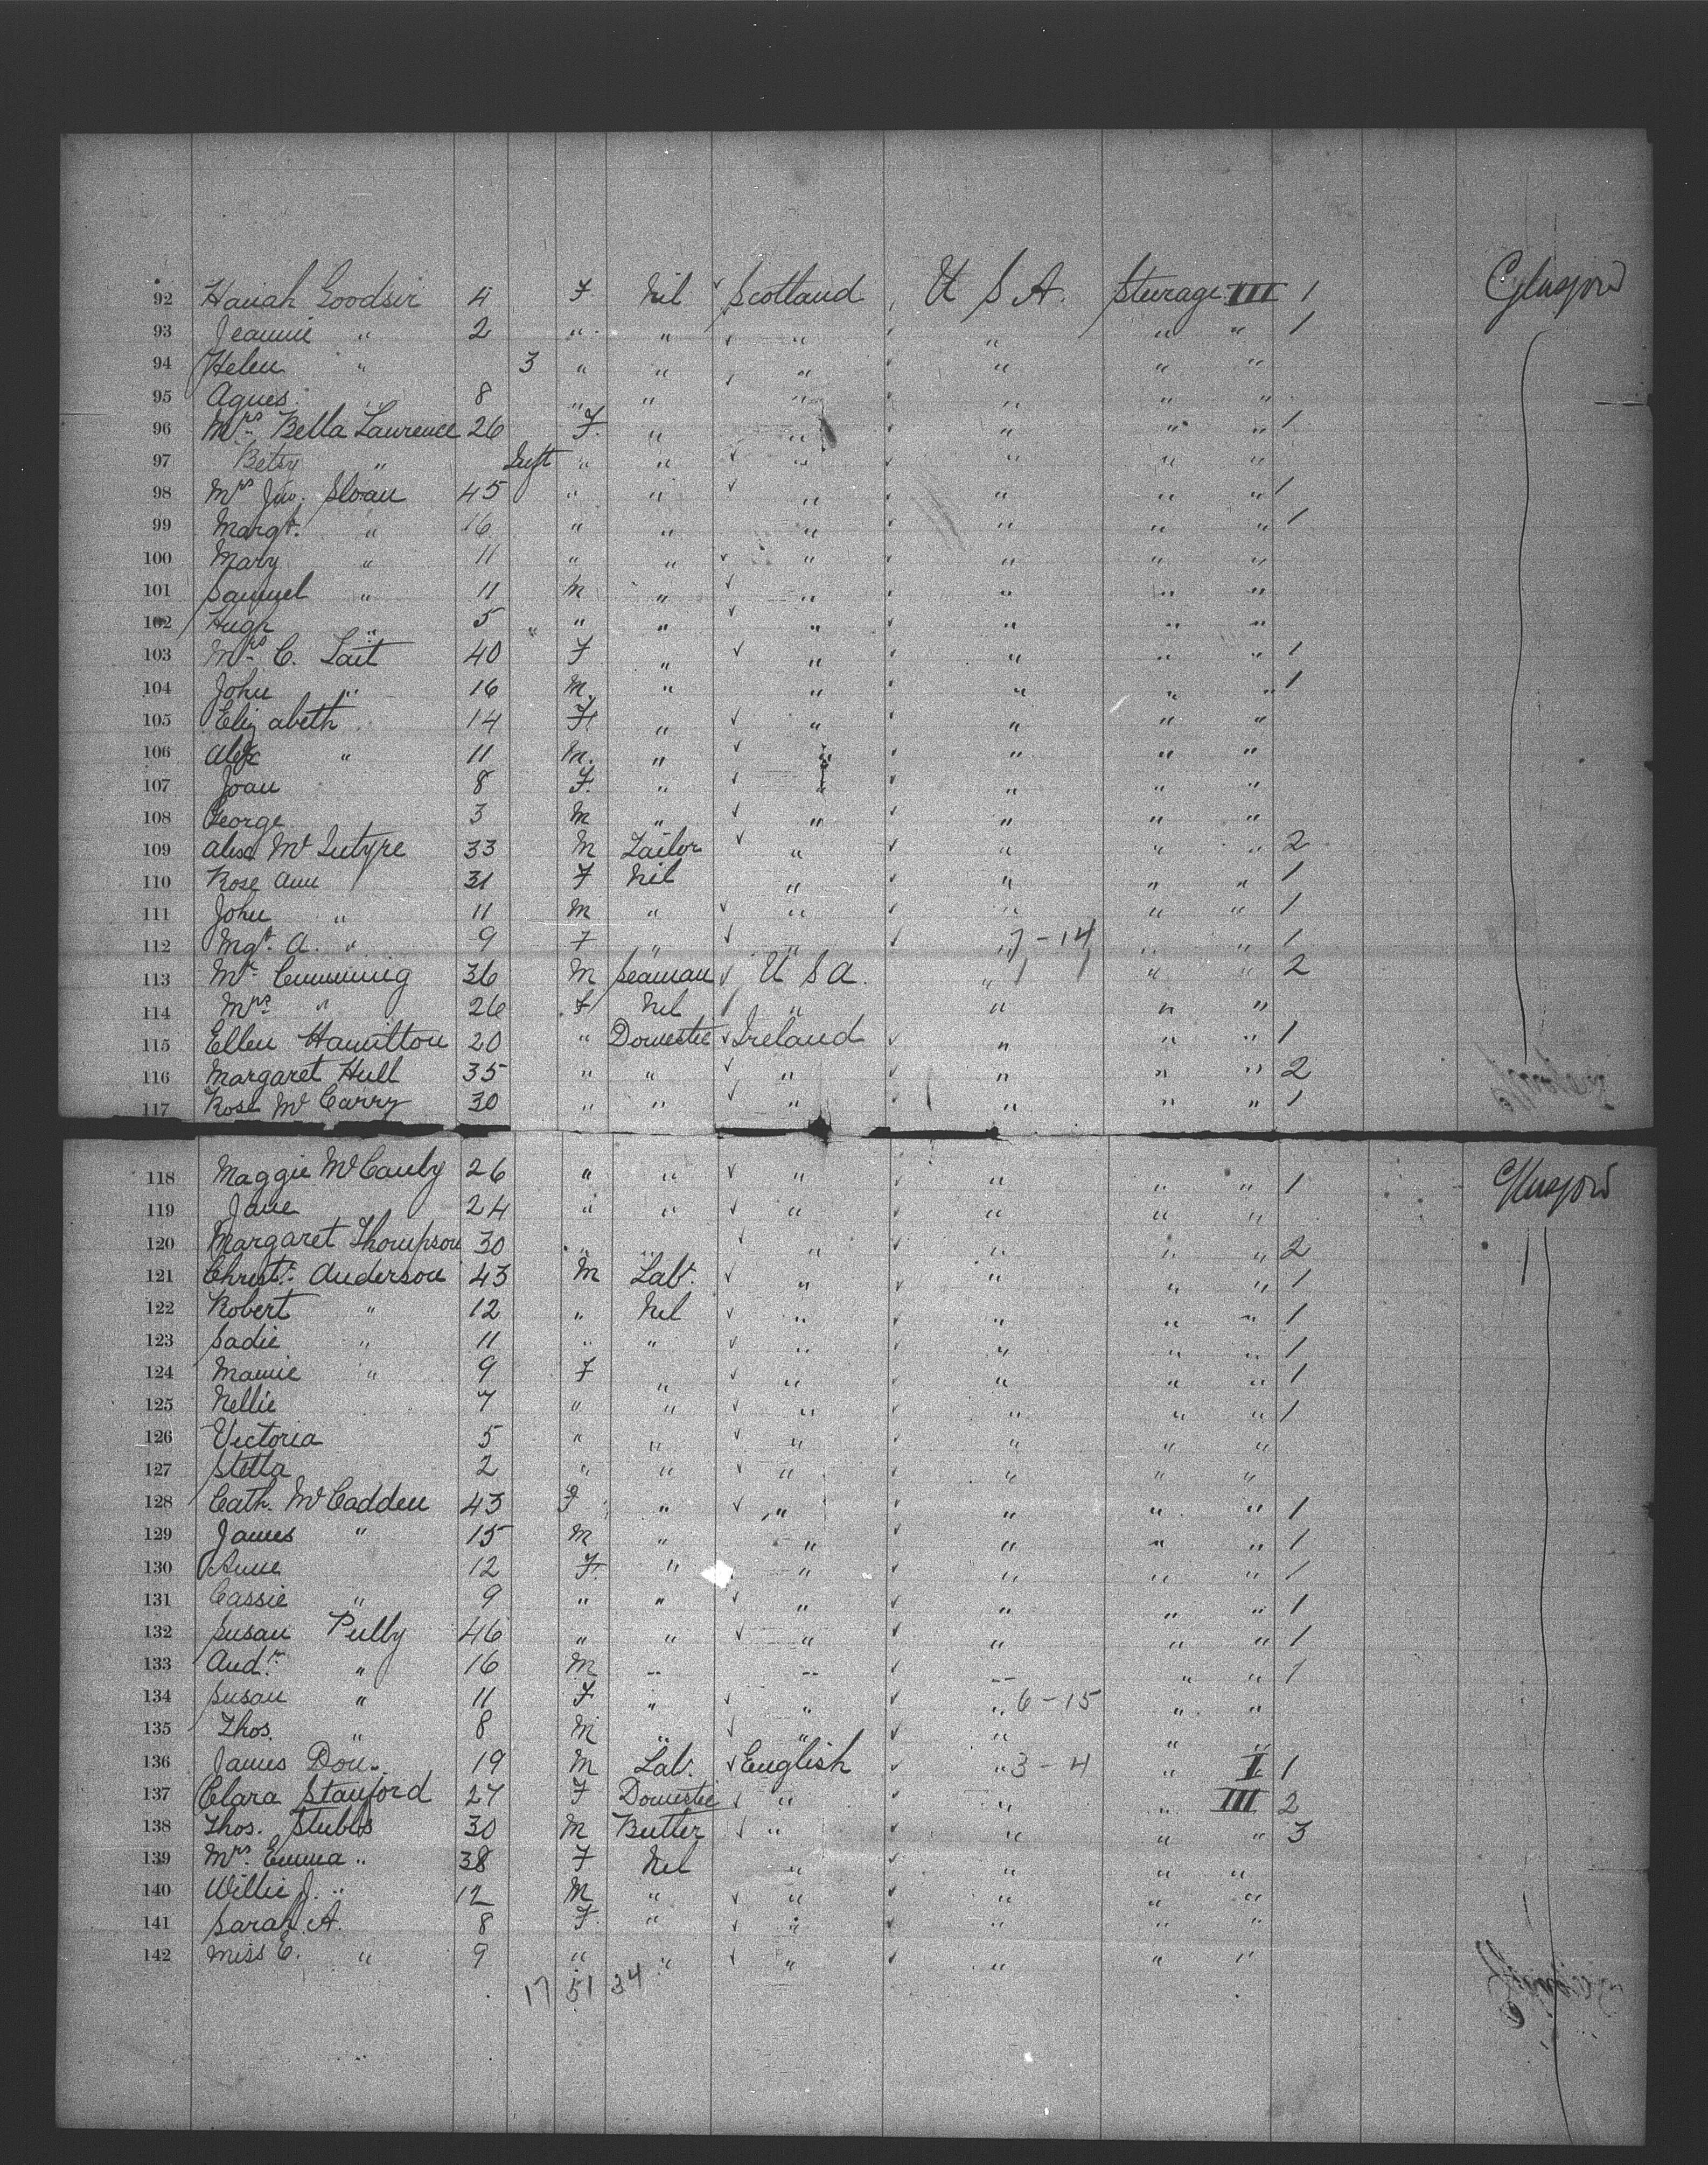 92 Hanah Goodsir 4 F Nil Scotland U S A. Sturage III 1 Glasgow
93 Jeannie " 2 " " " " " " 1
94 Helen " 3 " " " " " "
95 Agnes 8 " " " " " "
96 Mrs. Bella Laurence 26 F. " " " " " 1
97 Betsy " Inft " " " " " "
98 Mrs Jno. Sloan 45 " " " " " " 1
99 Margt. " 16 " " " " " " 1
100 Mary " 11 " " " " " "
101 Samuel " 11 M " " " " "
102 Hugh " 5 " " " " " " "
103 Mrs. C. Lait 40 F " " " " " 1
104 John " 16 M. " " " " " 1
105 Elizabeth 14 F. " " " " "
106 Alex " 11 M. " " " " "
107 Joan 8 F. " " " " "
108 George 3 M " " " " "
109 Alex Mc Intyre 33 M Tailor " " " " 2
110 Rose Ann 31 F Nil " " " " 1
111 John " 11 M " " " " " 1
112 Mgt. A. " 9 F " " " 7-14 " " 1
113 Mr. Cumming 36 M Seaman U S A. " " " 2
114 Mrs " 26 F Nil " " " "
115 Ellen Hamilton 20 " Domestic Ireland " " " 1
116 Margaret Hull 35 " " " " " " 2
117 Rose Mc Carry 30 " " " " " " 1
118 Maggie McCauly 26 " " " " " " 1 Glasgow
119 Jane 24 " " " " " "
120 Margaret Thompson 30 " " " " " " 2
121 Christr. Anderson 43 M Labr. " " " " 1
122 Robert " 12 " Nil " " " " 1
123 Sadie " 11 " " " " " " 1
124 Mamie " 9 F " " " " " 1
125 Nellie 7 " " " " " " 1
126 Victoria 5 " " " " " "
127 Stella 2 " " " " " "
128 Cath. McCadden 43 F " " " " " 1
129 James " 15 M " " " " " 1
130 Anne 12 F. " " " " " 1
131 Cassie " 9 " " " " " " 1
132 Susan Pully 46 " " " " " " 1
133 Andw. " 16 M -- -- -- " " 1
134 Susan " 11 F " " " 6-15 " "
135 Thos. " 8 M " " " " "
136 James Don.. 19 M Labr. English " 3-4 " I 1
137 Clara Stanford 27 F Domestic " " " III 2
138 Thos. Stubbs 30 M Butler " " " " 3
139 Mrs. Emma " 38 F Nil " " " "
140 Willie J. " 12 M " " " " "
141 Sarah A. 8 F. " " " " "
142 Miss E. " 9 " " " " " "
17 51 34